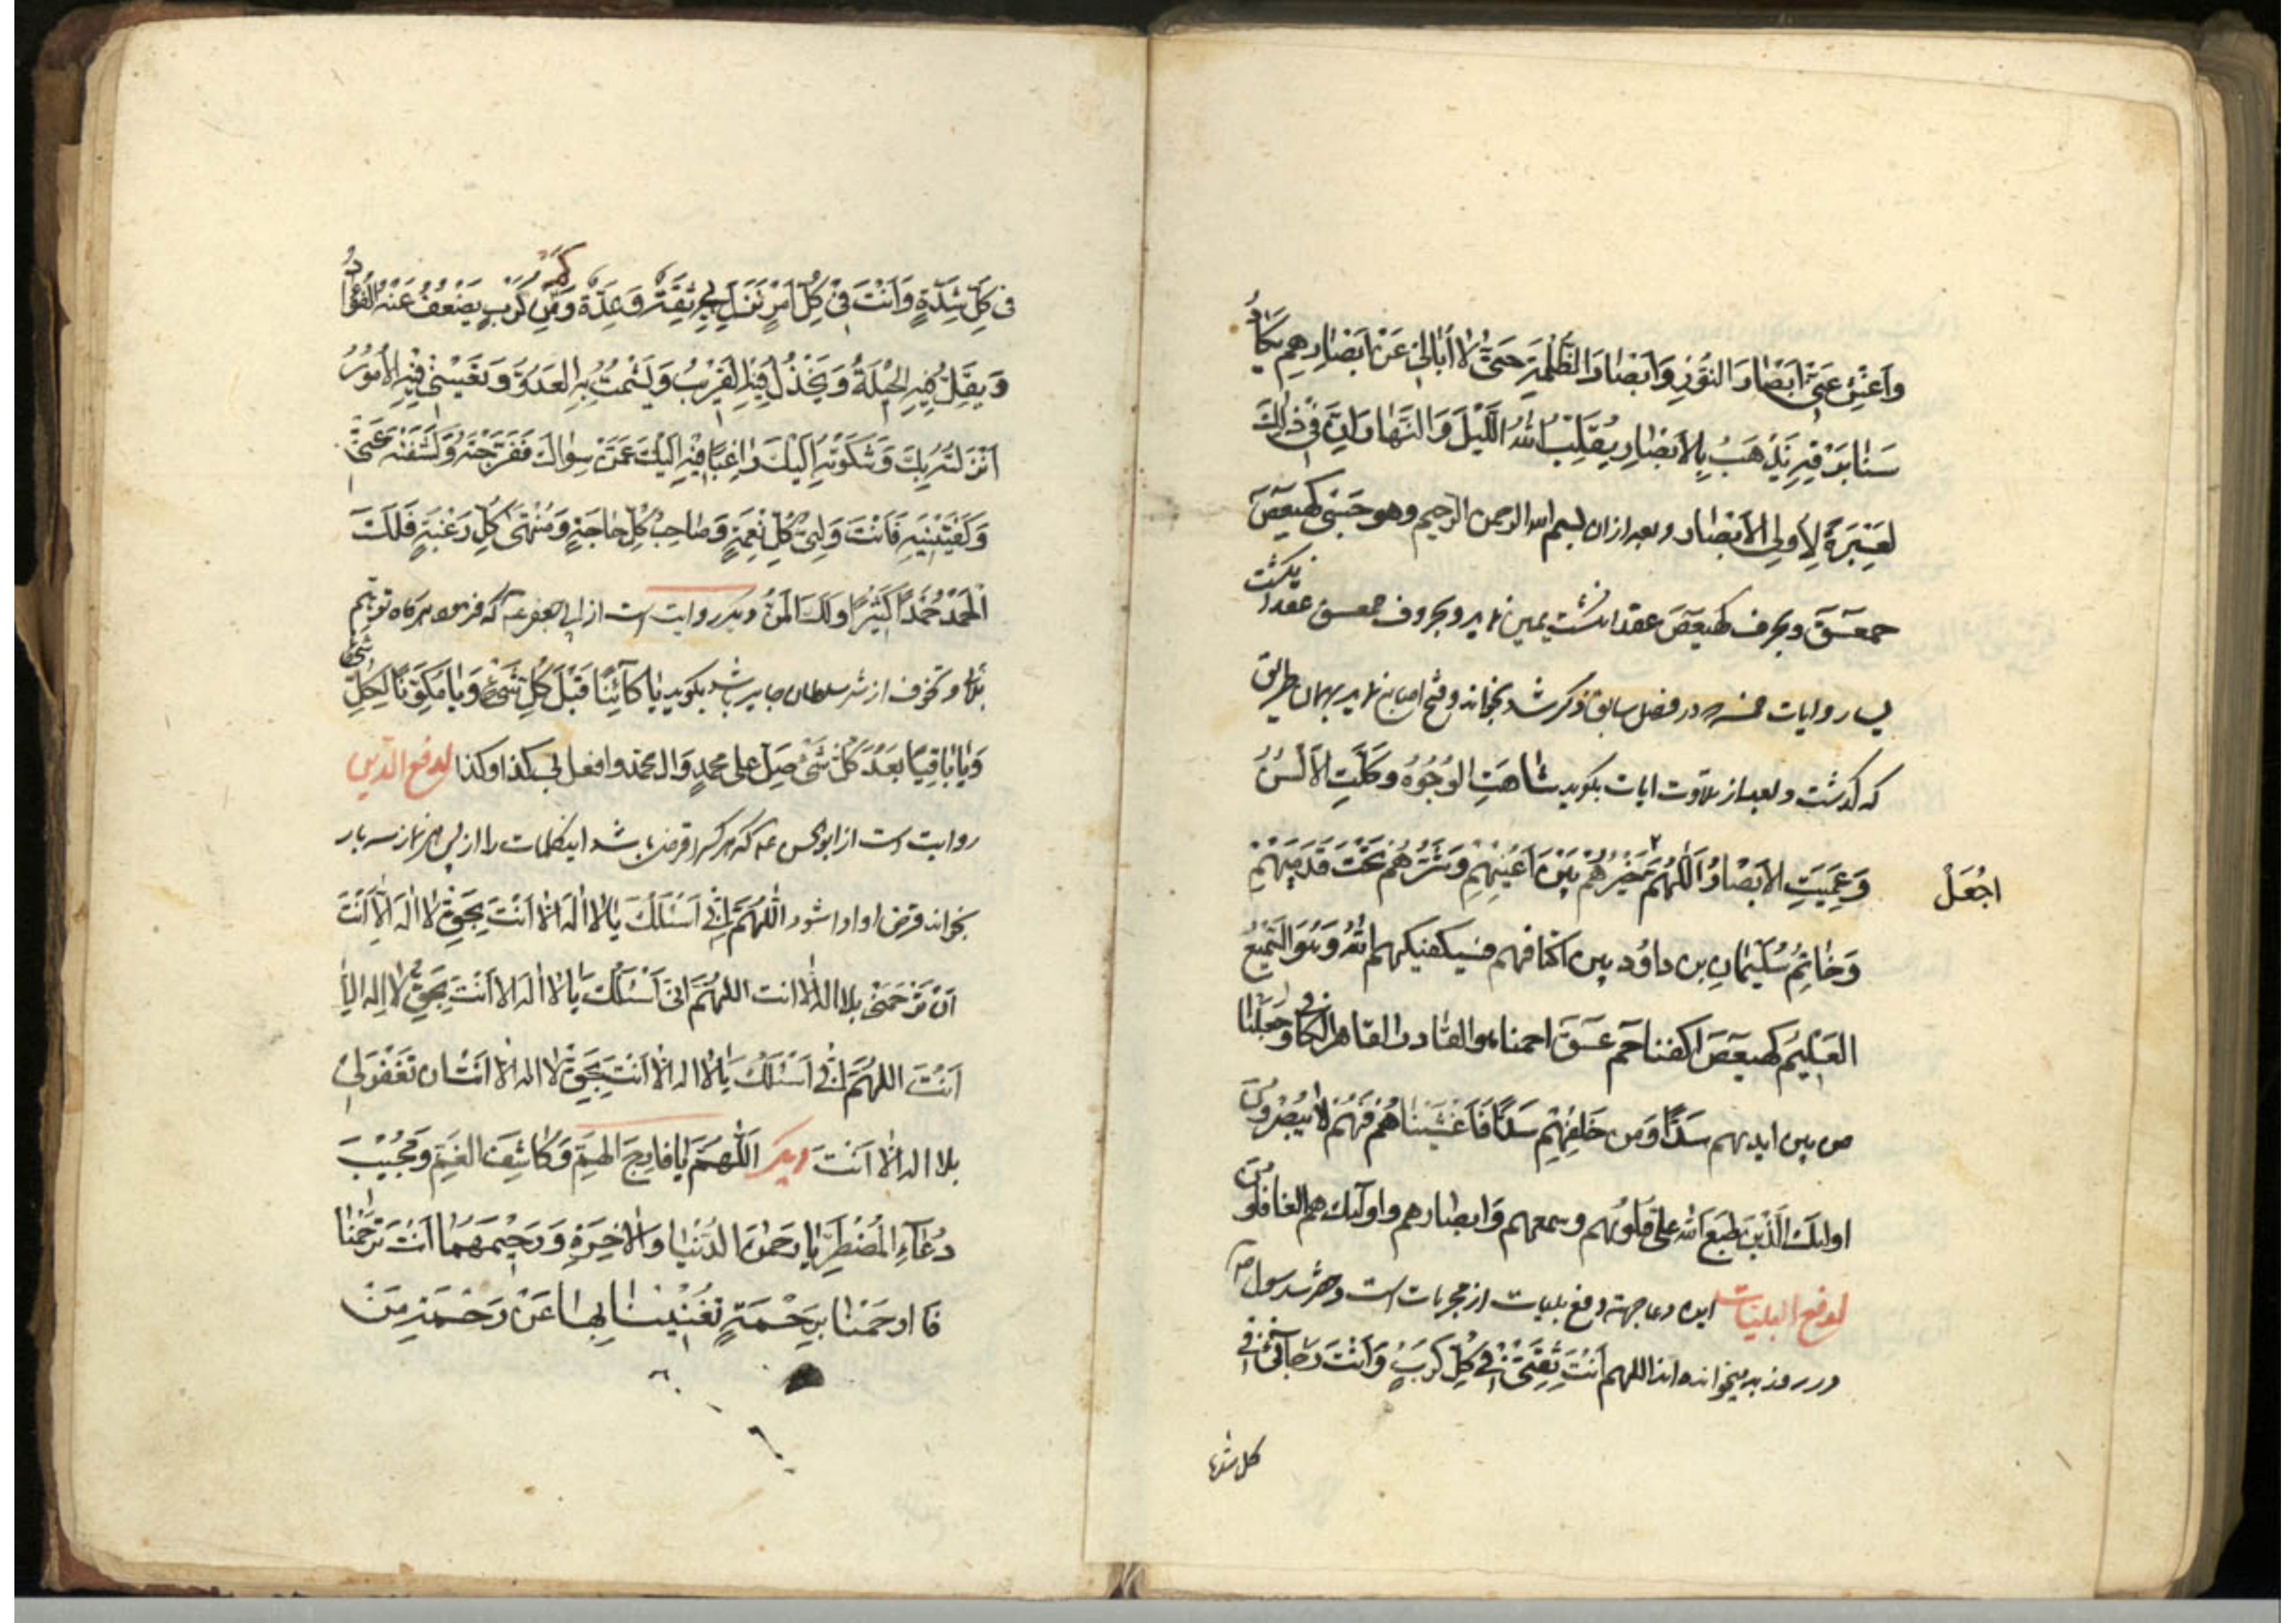 واعش عنی ابصار النور وابصار الظلمة حتی لا ابالی عن ابصارهم یکاد
سنا برقه یذهب بالابصار یقلب الله اللیل والنهار ان فی ذلك
لعبرة لاولی الابصار وبعد ازان بسم الله الرحمن الرحیم وهو حسبی کهیعص
حمعسق وبحرف کهیعص عقد انگشت یمین نماید وبحروف حمعسق عقد انگشت
یسار وایات خمسه که در فصل سابق ذکر شد بخواند وفتح اصابع نماید بهمان طریق
که گذشت وبعد از تلاوت ایات بگوید شاهت الوجوه وکلت الالسن
وعمیت الابصار اللهم خیرهم بین اعینهم وشرهم تحت قدمیهم
اجعل
وخاتم سلیمان بن داود بین اکتافهم فسیکفیکهم الله وهو السمیع
العلیم کهیعص اکفنا حم عسق احمنا هو القادر القاهر الکافی وجعلنا
من بین ایدیهم سدا ومن خلفهم سدا فاغشیناهم فهم لا یبصرون
اولئك الذین طبع الله علی قلوبهم وسمعهم وابصارهم واولئك هم الغافلون
لدفع البلیات این دعا جهة دفع بلیات از مجربات است وحضرت رسول ص
در روز بدر میخوانده اند اللهم انت ثقتی فی کل کرب وانت رجائی فی
کل شدة
فی کل شدة وانت فی کل امر نزل بی ثقة وعدة کم من کرب یضعف عنه الفؤاد
ویقل فیه الحیلة ویخذل فیه القریب ویشمت به العدو وتغیینی فیه الامور
انزلته بك وشکوته الیك راغبا فیه الیك عمن سواك ففرجته وکشفته عنی
وکفیتنیه فانت ولی کل نعمة وصاحب کل حاجة ومنتهی کل رغبة فلك
الحمد حمدا کثیرا ولك المن دیگر روایت است از ابی جعفر ع که فرمود هرگاه توهم
بلا وتخوف از شر سلطان جایر باشد بگوید یا کائنا قبل کل شیء ویا مکون کل شیء
ویا باقیا بعد کل شیء صل علی محمد وال محمد وافعل بی کذا وکذا لدفع الدین
روایت است از ابوالحسن ع که هر که را قرض باشد این کلمات را از پس هر نماز سه بار
بخواند قرض او ادا شود اللهم انی اسئلك یا لا اله الا انت بحق لا اله الا انت
ان ترحمنی بلا اله الا انت اللهم انی اسئلك یا لا اله الا انت بحق لا اله الا
انت اللهم انی اسئلك یا لا اله الا انت بحق لا اله الا انت ان تغفر لی
بلا اله الا انت دیگر اللهم یا فارج الهم وکاشف الغم ومجیب
دعاء المضطر یا رحمن الدنیا والاخرة ورحیمهما انت ترحمنا
فارحمنا برحمة تغنینا بها عن رحمة من